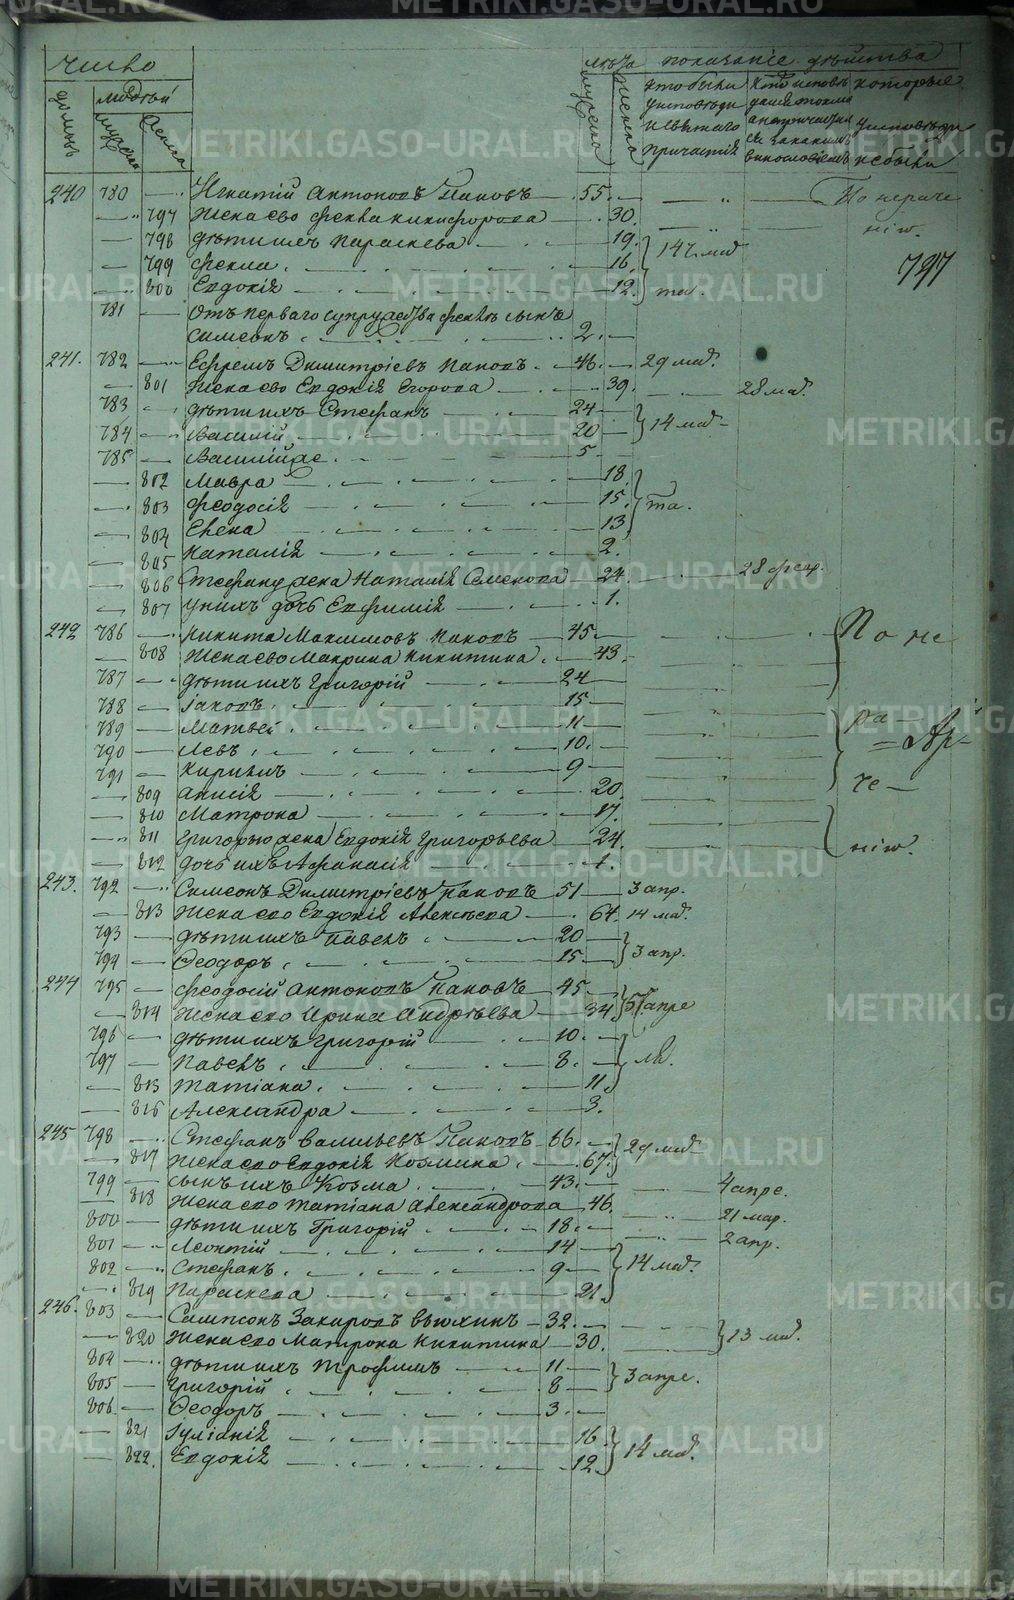 METRIKI.GASO-URAL.RU
число лѣта показаніе дѣйства
домовъ людей мужска женска
мужска женска
кто были у исповѣди и святаго причастія
которые у исповѣди не были
240 780 — Игнатій Антоновъ Пановъ — 55. — По нераче
797 Жена его Фекла Никифорова — 30. нію.
798 дѣти ихъ Параскева — 19. } 14 мар.
799 Фекла — 16.
797
800 Евдокія — 12. } та.
781 Отъ перваго супружества Феклы сынъ
Симеонъ — 2. —
241. 782 — Ефремъ Димитріевъ Пановъ — 46. — 29 мар.
801 Жена его Евдокія Егорова — 39. — 28 мар.
783 дѣти ихъ Стефанъ — 24 —
784 — Василій — 20 — } 14 мар.
785 — Василій же — 5 —
802 Мавра — 18.
803 Феодосія — 15. } та.
804 Елена — 13.
805 Наталія — 2.
806 Стефану жена Наталія Семенова — 24. — 28 февр.
807 у нихъ дочь Евфимія — 1.
242 786 — Никита Максимовъ Пановъ — 45 — По не
808 Жена его Макрина Никитина — 43.
787 — дѣти ихъ Григорій — 24 —
788 — Іаковъ — 15 —
789 — Матвей — 11 — ра-
790 — Левъ — 10. —
791 — Кирилъ — 9 —
809 Анисія — 20. че —
810 Матрона — 17.
811 Григорью жена Евдокія Григорьева — 24.
812 дочь ихъ Афанасія — 1. нію.
243. 792 — Симеонъ Димитріевъ Пановъ 51 — 3 апр.
813 Жена его Евдокія Алексѣева — 64. 14 мар.
793 — дѣти ихъ Павелъ — 20 —
794 — Ѳеодоръ — 15 — } 3 апр.
244 795 — Феодосій Антоновъ Пановъ — 45 —
814 Жена его Ирина Андрѣева — 34 } 5 апре
796 — дѣти ихъ Григорій — 10. —
797 — Павелъ — 8. —
815 Татіана — 11.
816 Александра — 3.
245 798 — Стефанъ Васильевъ Пановъ — 66. —
817 Жена его Евдокія Козмина — 67. } 29 мар.
799 — сынъ ихъ Козма — 43. — 4 апре.
818 Жена его Татіана Александрова 46. 21 мар.
800 — дѣти ихъ Григорій — 18. — 2 апр.
801 — Леонтій — 14 —
802 — Стефанъ — 9 — } 14 мар.
819 Параскева — 21.
246. 803 — Сампсонъ Захаровъ Вьюхинъ — 32. —
820 Жена его Матрона Никитина — 30. } 23 мар.
804 — дѣти ихъ Трофимъ — 11 —
805 — Григорій — 8 — } 3 апре.
806 — Ѳеодоръ — 3. —
821 Іуліанія — 16.
822. Евдокія — 12. } 14 мар.